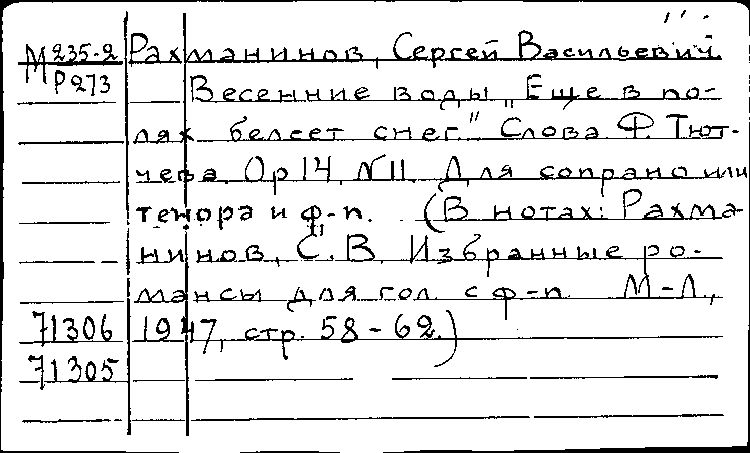 М 235-2 Рахманинов, Сергей Васильевич
Р273 Весенние воды „Еще в по-
лях белеет снег." Слова Ф. Тют-
чева. Ор 14, N 11. Для сопрано или
тенора и ф-п. (В нотах: Рахма-
нинов, С. В. Избранные ро-
мансы для гол. с ф-п М-Л.,
71306 1947, стр. 58-62.)
71305